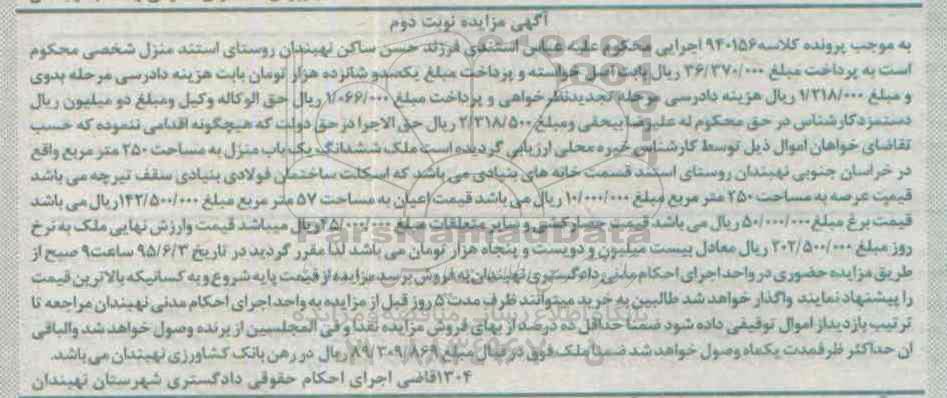 آگهی مزایده نوبت دوم
به موجب پرونده کلاسه ۹۴۰۱۵۶ اجرایی محکوم علیه عباس اسنندی فرزند حسن ساکن نهبندان روستای استند منزل شخصی محکوم
است به پرداخت مبلغ ۳۶/۳۷۰/۰۰۰ ریال بابت اصل خواسته و پرداخت مبلغ یکصدو شانزده هزار تومان بابت هزینه دادرسی مرحله بدوی
و مبلغ ۱/۲۱۸/۰۰۰ ریال هزینه دادرسی مرحله تجدیدنظرخواهی و پرداخت مبلغ ۱/۰۶۶/۰۰۰ ریال حق الوکاله وکیل ومبلغ دو میلیون ریال
دستمزدکارشناس در حق محکوم له علیرضا بیخفی ومبلغ ۲/۳۱۸/۵۰۰ ریال حق الاجرا در حق دولت که هیچگونه اقدامی ننموده که حسب
تقاضای خواهان اموال ذیل توسط کارشناس خبره محلی ارزیابی گردیده است ملک ششدانگ یک باب منزل به مساحت ۲۵۰ متر مربع واقع
در خراسان جنوبی نهبندان روستای استند قسمت خانه های بنیادی می باشد که اسکلت ساختمان فولادی بنیادی سقف تیرچه می باشد
قیمت عرصه به مساحت ۲۵۰ متر مربع مبلغ ۱۰/۰۰۰/۰۰۰ ریال می باشد قیمت اعیان به مساحت ۵۷ متر مربع مبلغ ۱۴۲/۵۰۰/۰۰۰ریال می باشد
قیمت برغ مبلغ ۵۰/۰۰۰/۰۰۰ ریال می باشد قیمت حصارکشی و سایر متعلقات مبلغ ریال میباشد قیمت وارزش نهایی ملک به نرخ
روز مبلغ ۲۰۲/۵۰۰/۰۰۰ ریال معادل بیست میلیون و دویست و پنجاه هزار تومان می باشد لذا مقرر گردید در تاریخ ۹۵/۶/۳ ساعت۹ صبح از
طریق مزایده حضوری در واحد اجرای احکام مدنی دادگستری نهبندان به فروش برسد مزایده از قیمت پایه شروع و به کسانیکه بالاترین قیمت
را پیشنهاد نمایند واگذار خواهد شد طالبین به خرید میتوانند ظرف مدت ۵ روز قبل از مزایده به واحد اجرای احکام مدنی نهبندان مراجعه تا
ترتیب بازدیداز اموال توقیفی داده شود ضمنا حداقل ده درصد از بهای فروش مزایده نقدا و فی المجلسین از برنده وصول خواهد شد والباقی
ان حداکثر ظرفمدت یکماه وصول خواهد شد ضمنا ملک فوق در قبال مبلغ ۸۹/۳۰۹/۸۶۹ ریال در رهن بانک کشاورزی نهبندان می باشد.
۱۳۰۴قاضی اجرای احکام حقوقی دادگستری شهرستان نهبندان
ParsNamadData